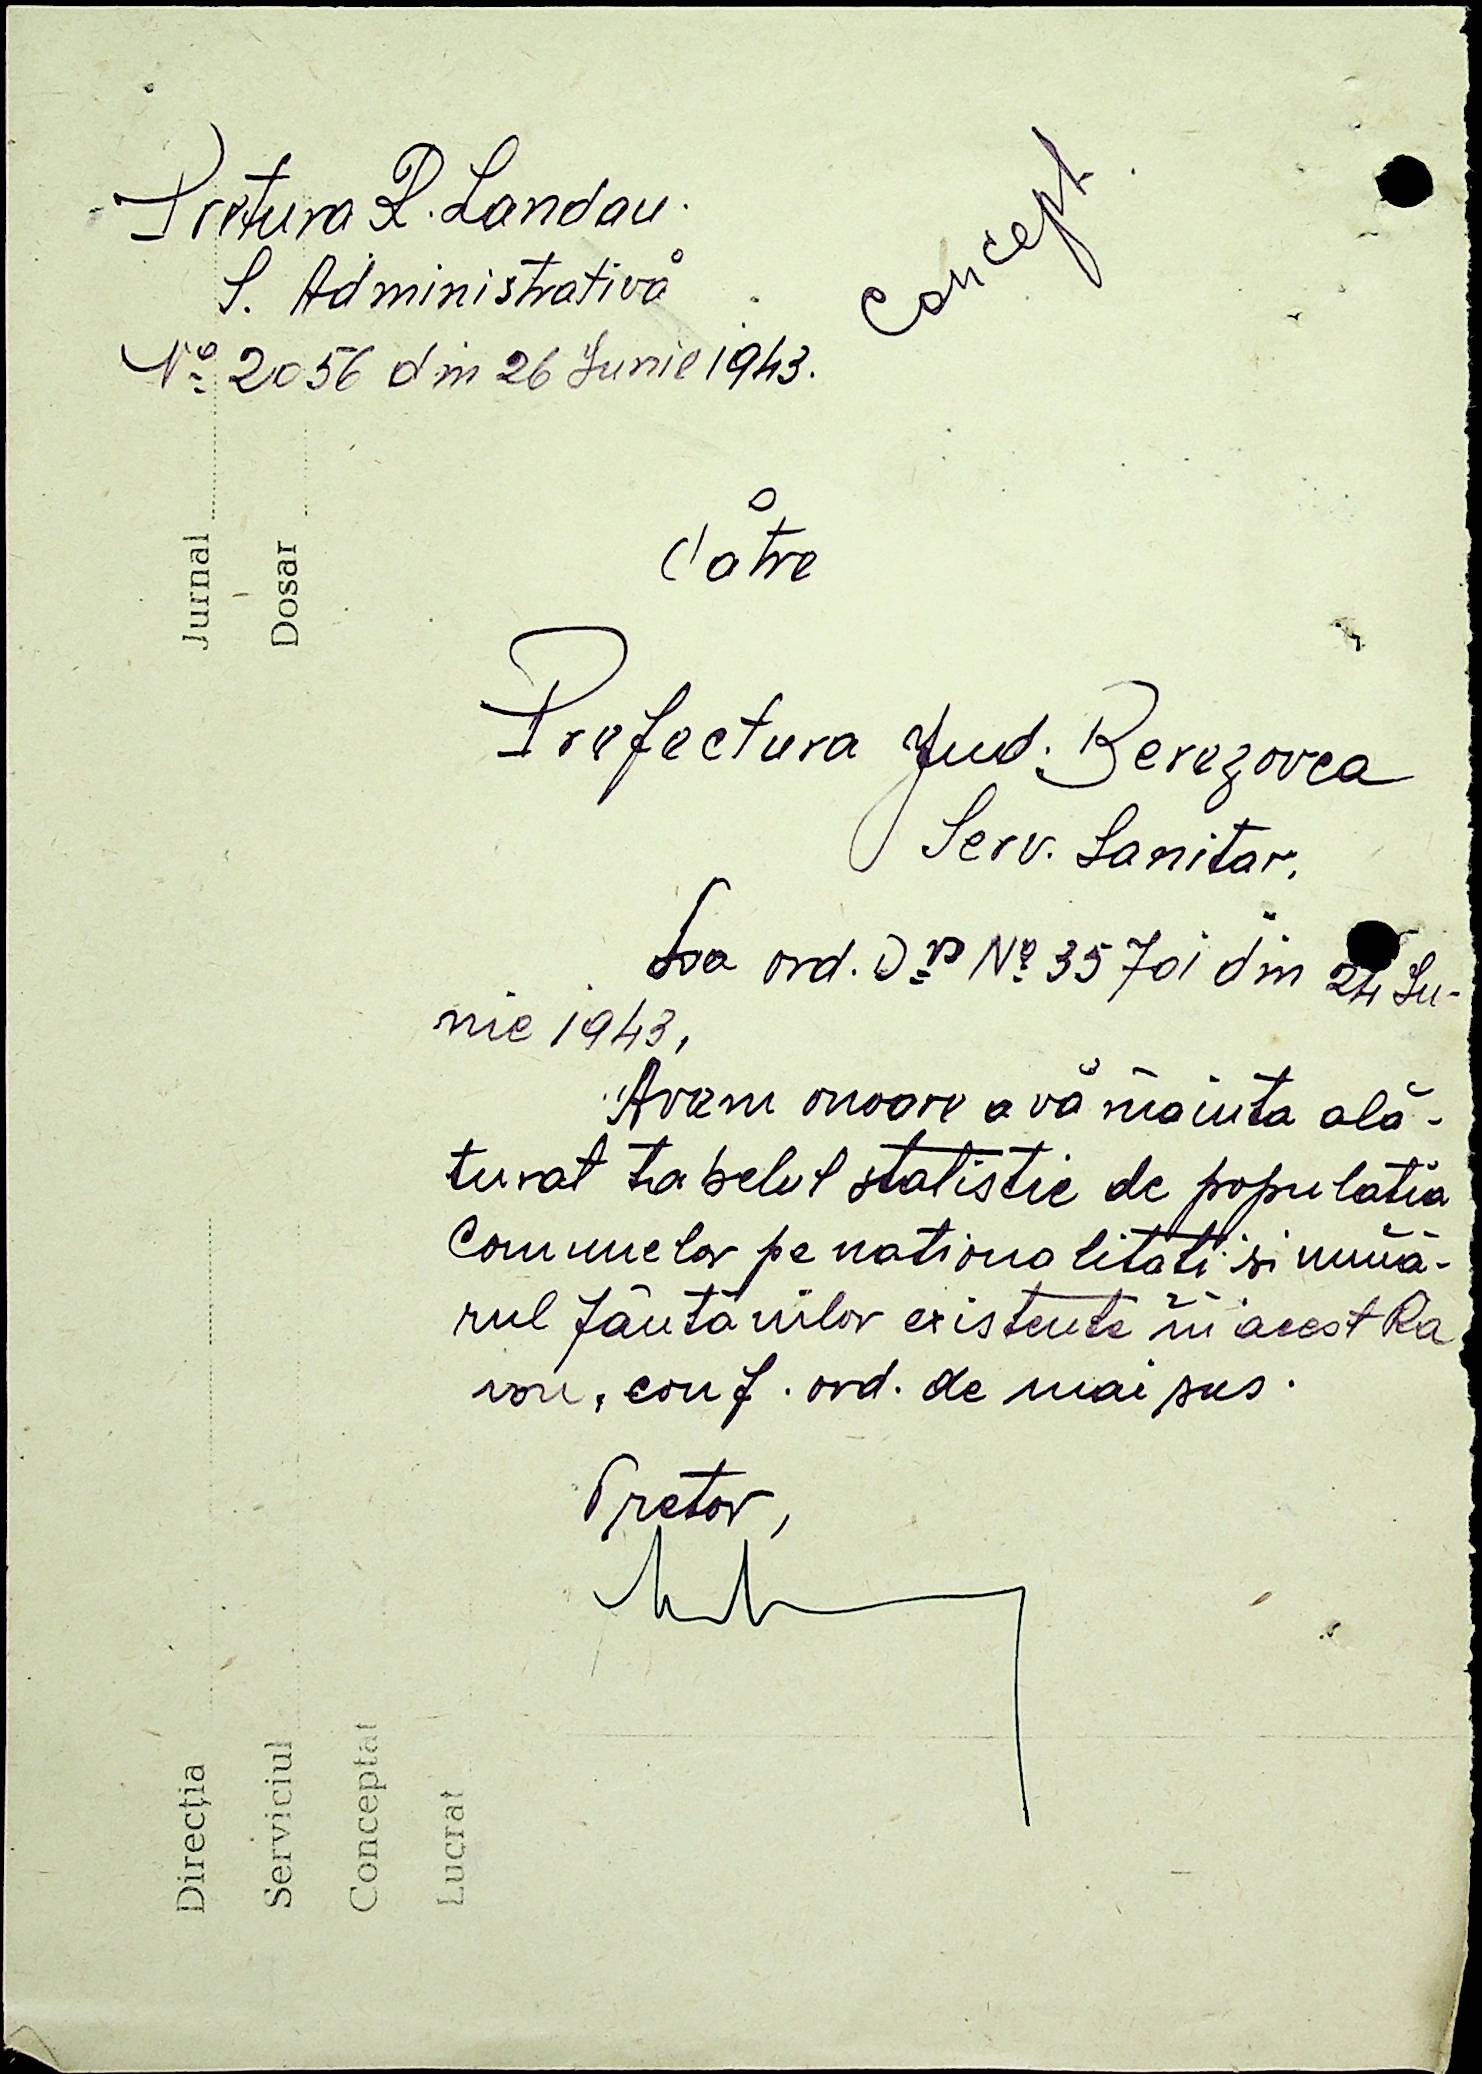 Pretura R. Landau.
S. Administrativă
Nº 2056 din 26 Iunie 1943.
Concept.
Către
Prefectura Jud. Berezovca
Serv. Sanitar,
La ord. Dvs Nº 35701 din 24 Iu-
nie 1943,
Avem onoare a vă înainta ală-
turat tabelul statistic de populatia
Comunelor pe nationalităti si numă-
rul fântânilor existente în acest Ra
ion, conf. ord. de mai sus.
Pretor,
Jurnal
Dosar
Direcţia
Serviciul
Conceptat
Lucrat